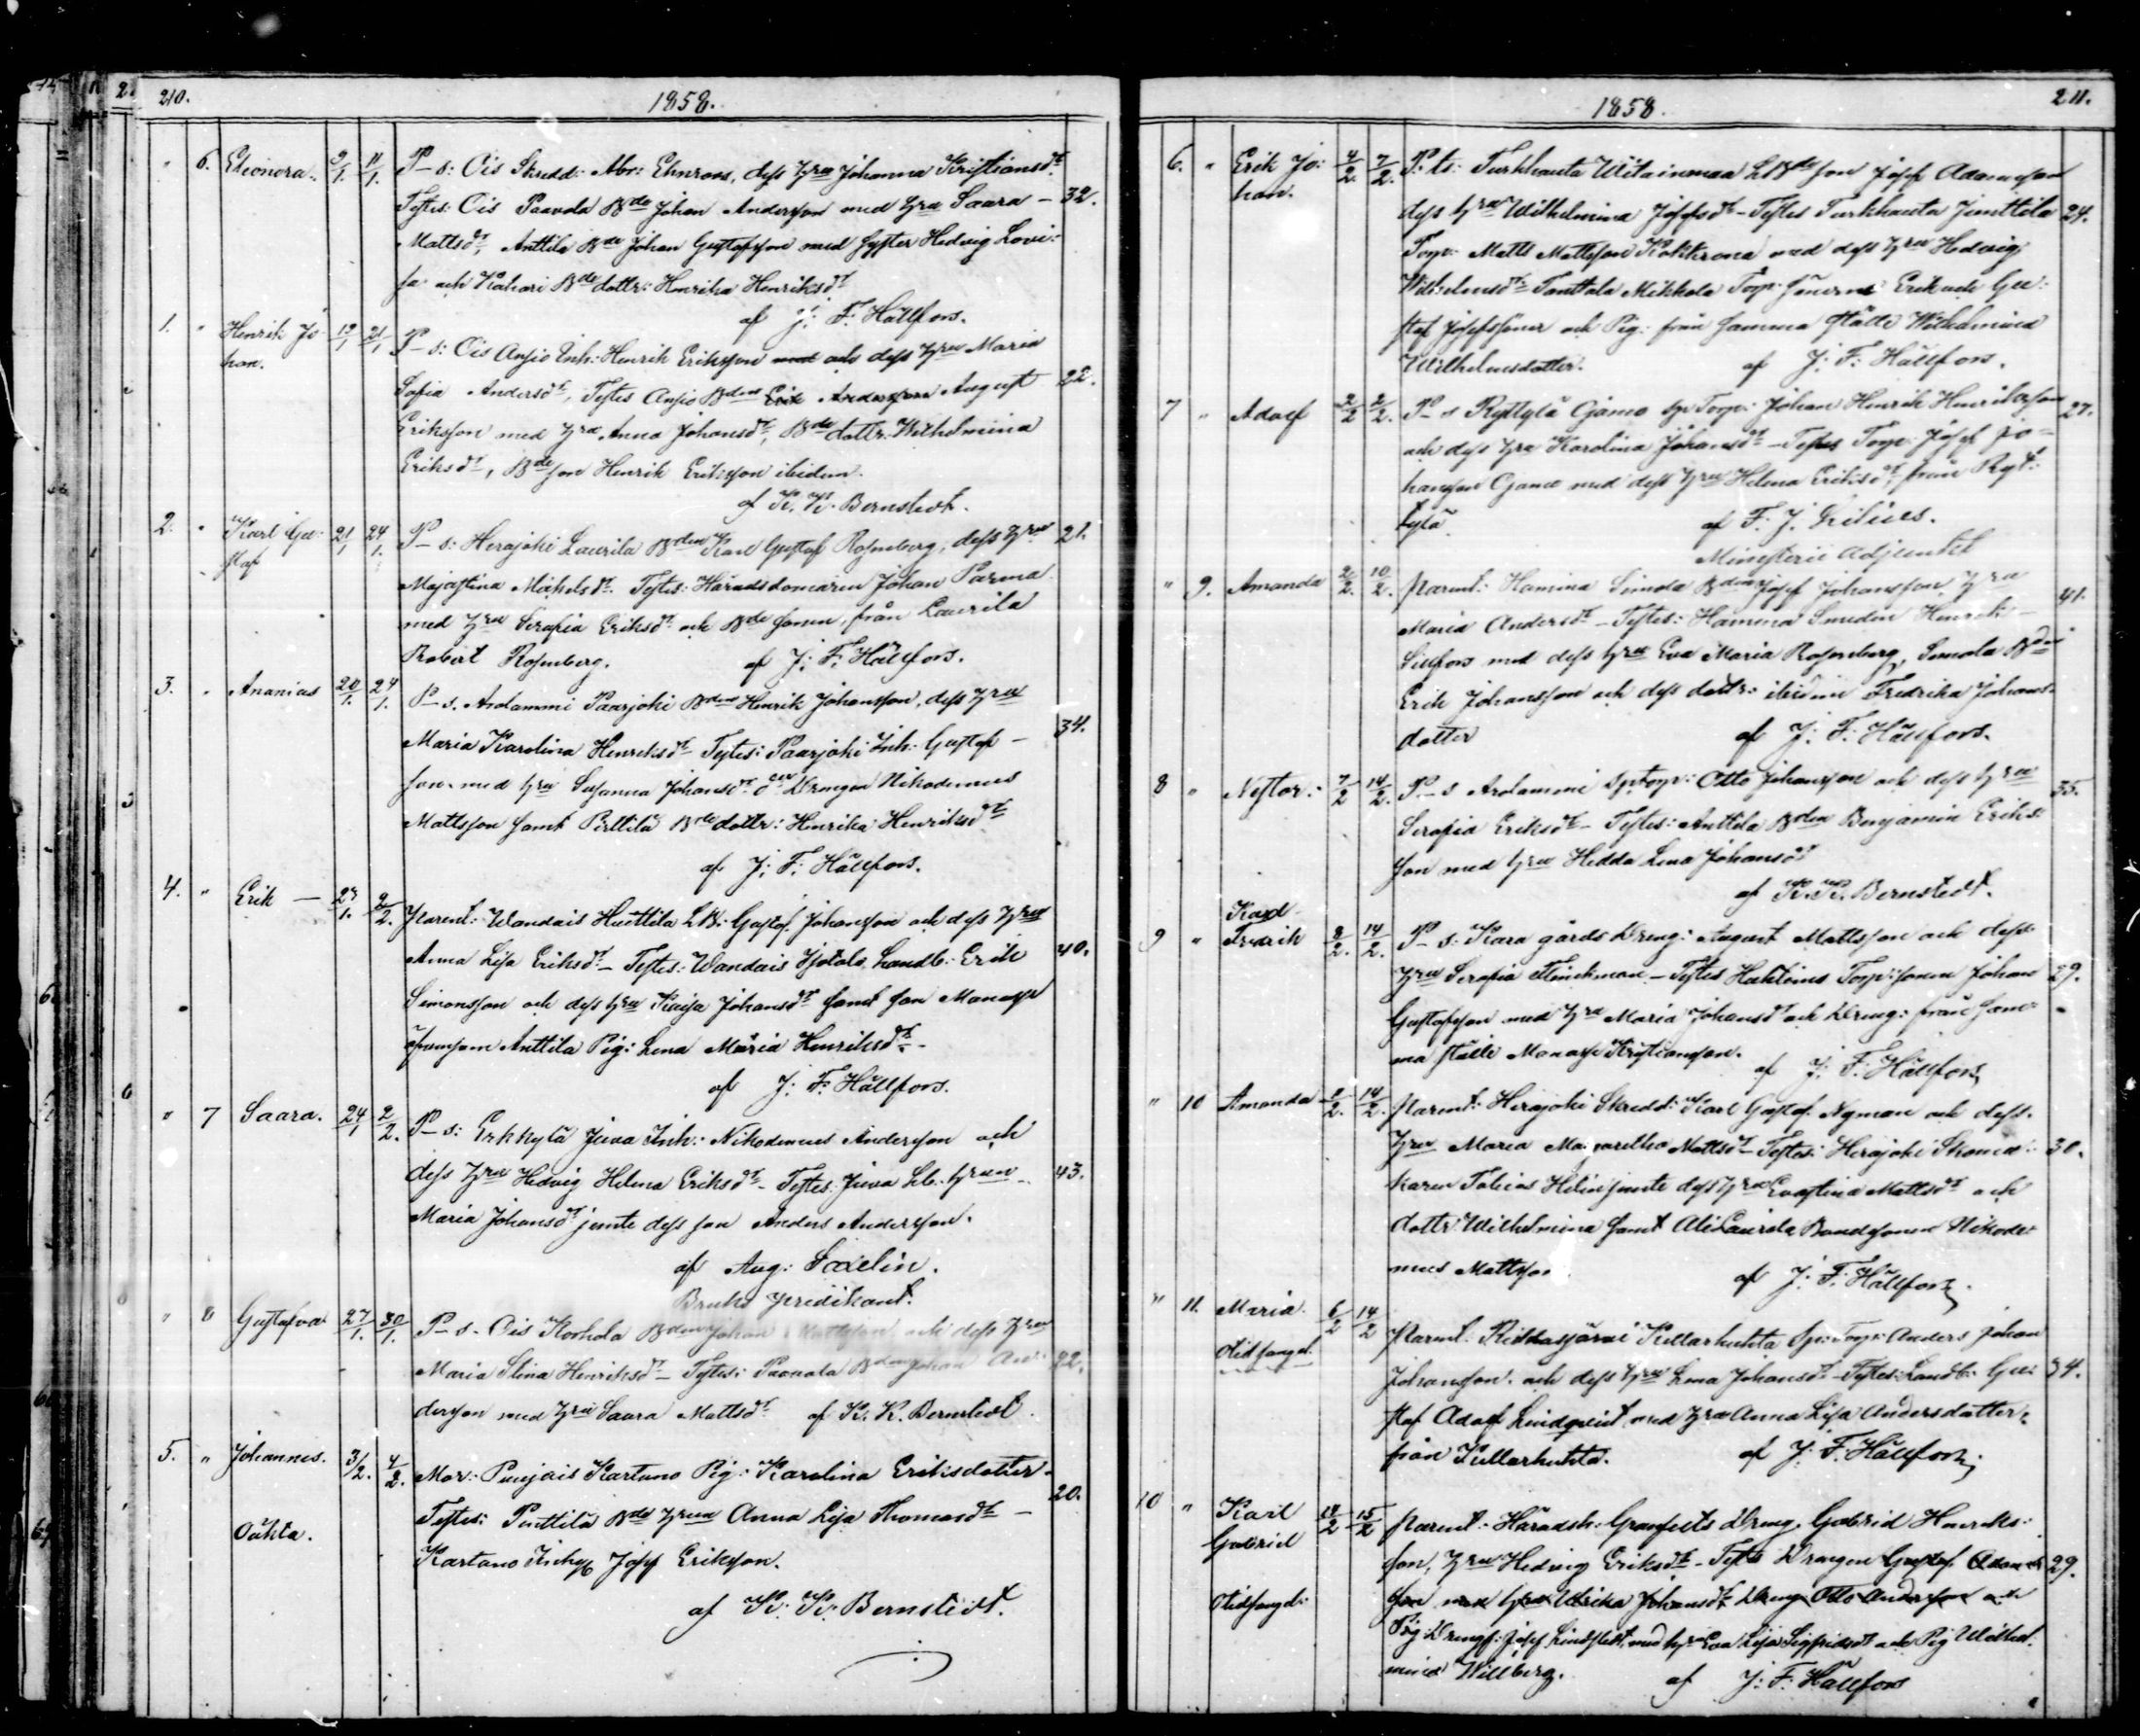 210. 1858.
" 6. Eleonora. 9/1. 11/1. P_s: Ois Skredd: Abr: Ehnroos, dess hru Johanna Kristiansdr.
Testes: Ois Paavola Bde Johan Andersson med hru Saara – 32.
Mattsdr, Anttila Bde Johan Gustafsson med Syster Hedvig Lovi:
sa och Kahari Bde dottr: Henrika Henriksdr
af J: F: Hällfors.
1. " Henrik Jo: 19/1 21/1 P_s: Ois Ansio Inh: Henrik Eriksson och dess hru Maria
han.
Sofia Andersdr, Testes Ansio Bden August 22.
Eriksson med hru Anna Johansdr, Bde dottr. Wilhelmina
Eriksdr, Bdeson Henrik Eriksson ibidem.
af K. K. Bernstedt.
2. " Karl Gu: 21/1 24/1. P_s: Herajoki Laurila Bden Karl Gustaf Rosenberg, dess hru 21.
staf
Majastina Michelsdr. Testes: Häradsdomaren Johan Parma
med hru Serafia Eriksdr och Bde sonen, från Laurila
Robert Rosenberg. af J: F: Hällfors.
3. " Ananias 20/1. 24/1. P_s. Arolammi Paarjoki Bden Henrik Johansson, dess hru
Maria Karolina Henriksdr Testes: Paarjoki Inh: Gustaf – 34.
son med hru Susanna Johansdr Drengen Nikodemus
Mattsson samt Pirttilä Bde dottr: Henrika Henriksdr
af J: F: Hällfors.
4. " Erik — 27/1. 2/2. Parent: Wandais Huttila LB: Gustaf Johansson och dess hru
Anna Lisa Eriksdr – Testes: Wandais Landb: Erik 40.
Simonsson och dess hru Kaisa Johansdr samt son Manasse
Anttila Pig: Lena Maria Henriksdr. -
af J: F: Hällfors.
" 7 Saara. 24/1 2/2. P_s: Erkkylä Juva Inh: Nikodemus Andersson och
dess hru Hedvig Helena Eriksdr - Testes: Juva Lb. hrun 43.
Maria Johansdr jemte dess son Anders Andersson.
af Aug: Saxelin.
Bruks predikant.
" 8 Gustafva 27/1. 30/1. P_s. Ois Korhola Bden Johan Mattsson och dess hru
Maria Stina Henriksdr – Testes: Paavola Bden Johan An: 22.
dersson med hru Saara Mattsdr af K. K. Bernstedt.
5. " Johannes. 3/2. 4/2. Mor: Puujais Kartano Pig: Karolina Eriksdotter.
Testes: Penttilä Bde hrun Anna Lisa Thomasdr — 20.
Oäkta.
Kartano Josef Eriksson.
af K: K: Bernstedt.
1858. 211.
6. " Erik Jo: 4/2. 7/2. P: ts: Turkhauta Witainmaa LBde son Josef Adamsson
han.
dess hru Wilhelmina Josefsdr – Testes Turkhauta Junttila 24.
Torp: Matts Mattsson Kokkrona med dess hru Hedvig
Wilhelmsdr Tanttala Mikkola Torp: Sönerne Erik och Gu:
staf Josefssöner och Pig: från samma ställe Wilhelmina
Wilhelmsdotter. af J: F: Hällfors.
7 " Adolf 2/2 2/2. P_s Ryttylä Ojamo Sp Torp: Johan Henrik Henriksson 27.
och dess hru Karolina Johansdr – Testes Torp: Josef Jo=
hansson Ojamo med dess hru Helena Eriksdr, från Ryt:
tylä. af F. J. Grilius.
Ministerii Adjunkt
" 9. Amanda 2/2. 10/2. Parent: Hamina Simola Bden Josef Johansson, hru 41.
Maria Andersdr – Testes: Hamina Smeden Henrik –
Silfors med dess hru Eva Maria Rosenberg, Simola Bden
Erik Johansson och dess dottr: ibidem Fredrika Johans
dotter af J: F: Hällfors.
8 " Nestor: 7/2 14/2. P_s Arolammi Sptorp: Otto Johansson och dess hru 35.
Serafia Eriksdr – Testes: Anttila Bden Benjamin Eriks:
son med hru Hedda Lena Johansdr
af K. K. Bernstedt.
Karl
9 " Fredrik 8/2. 14/2. P_s: Kara gårds Dreng: August Mattsson och dess
hru Serafia Flinkman – Testes Torp: sonen Johan 29.
Gustafsson med hru Maria Johansdr och Dreng: från sam=
ma ställe Manasse Kristiansson. af J: F: Hällfors.
" 10 Amanda 14/2. Parent: Herajoki Skredd: Karl Gustaf Nyman och dess.
hru Maria Margaretha Mattsdr – Testes: Herajoki Skoma: 30.
karen Tobias Helin jemte dess hru Evastina Mattsdr och
dottr Wilhelmina samt Ali Laurila Bondesonen Nikode:
mus Mattsson af J: F: Hällfors.
" 11. Maria 6/2 14/2 Parent: Kullarhuhta Sp: Torp: Anders Johan
Johansson. och dess hru Lena Johansdr – Testes: Landb: Gu: 34.
staf Adolf Lindqvist med hru Anna Lisa Andersdotter
från Kullarhuhta. af J: F: Hällfors.
10 " Karl 14/2 15/2 Parent: Häradsh: Granfelts dreng. Gabriel Henriks:
Gabriel
son, hru Hedvig Eriksdr – Testes Drengen Gustaf Adams 29.
son med hru Ulrika Johansdr Dreng Otto Andersson och
Pig Drengs: Josef Lindstedt med hru Eva Lisa Sigfridsdr och Pig Wilhel.
mina Willberg. af J: F: Hällfors